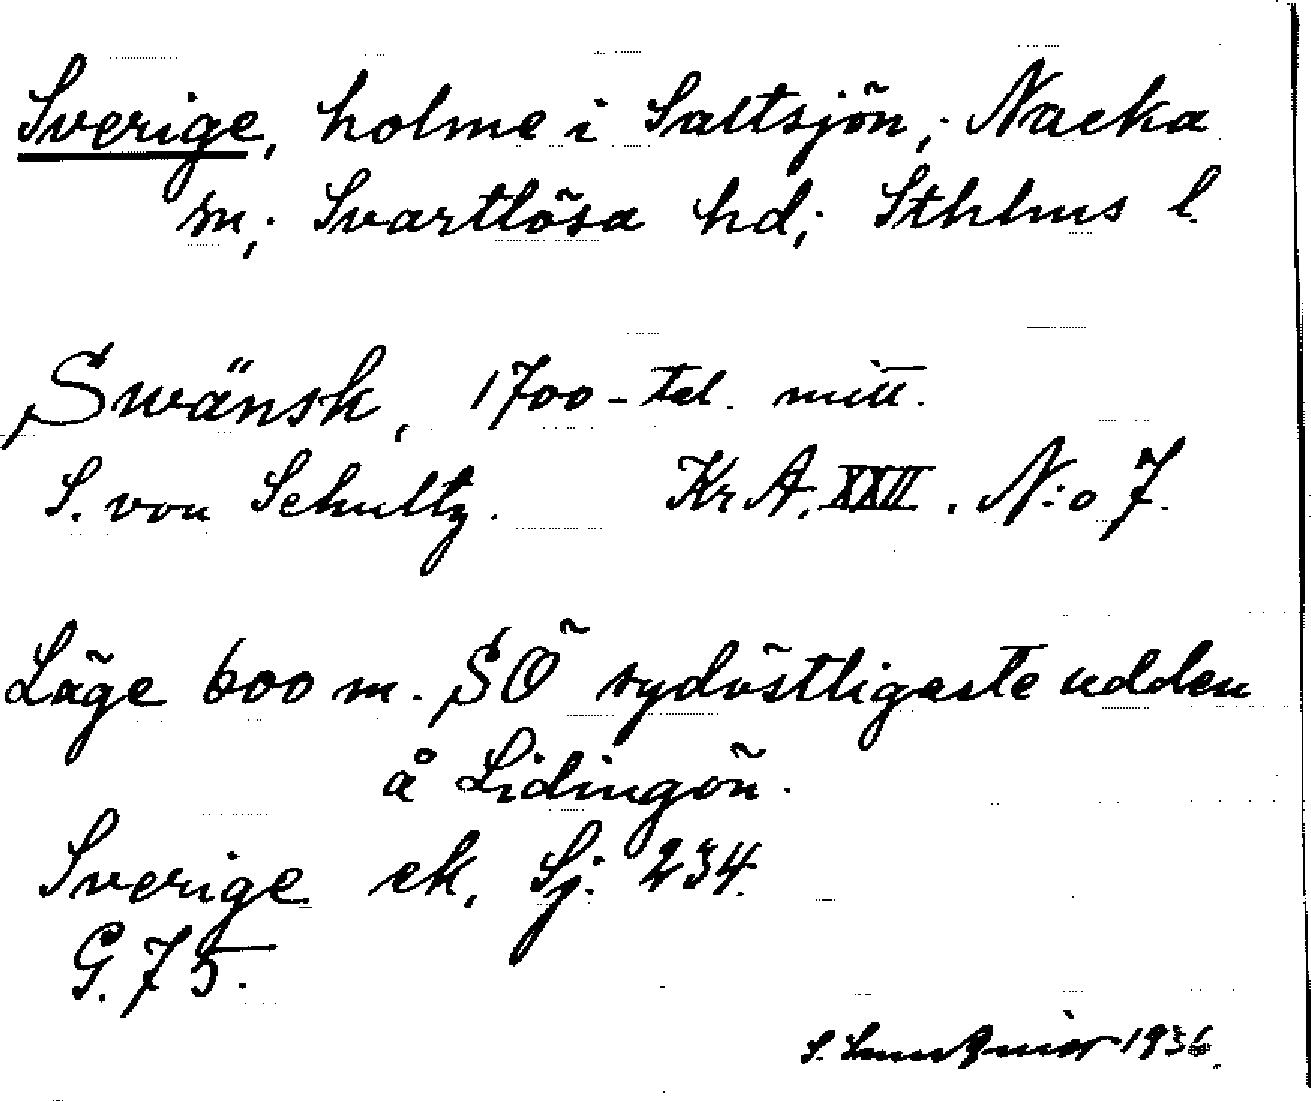 Sverige, holme i Saltsjön; Nacka
sn; Svartlösa hd; Sthlms l.
Swänsk, 1700-tal. mitt.
S. von Schultz. Kr A. XXII. N:o 7.
Läge 600 m. SÖ sydöstligaste udden
å Lidingön.
Sverige ek. Sj. 234.
G. 75.
S. 1936.